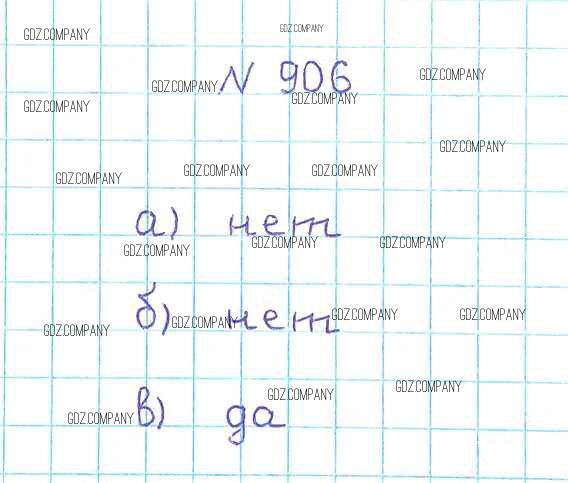 GDZ.COMPANY GDZ.COMPANY
№ 906
GDZ.COMPANY GDZ.COMPANY
GDZ.COMPANY GDZ.COMPANY
GDZ.COMPANY
GDZ.COMPANY GDZ.COMPANY GDZ.COMPANY
а) нет
GDZ.COMPANY GDZ.COMPANY GDZ.COMPANY
б) нет
GDZ.COMPANY GDZ.COMPANY GDZ.COMPANY GDZ.COMPANY
GDZ.COMPANY GDZ.COMPANY
в) да
GDZ.COMPANY